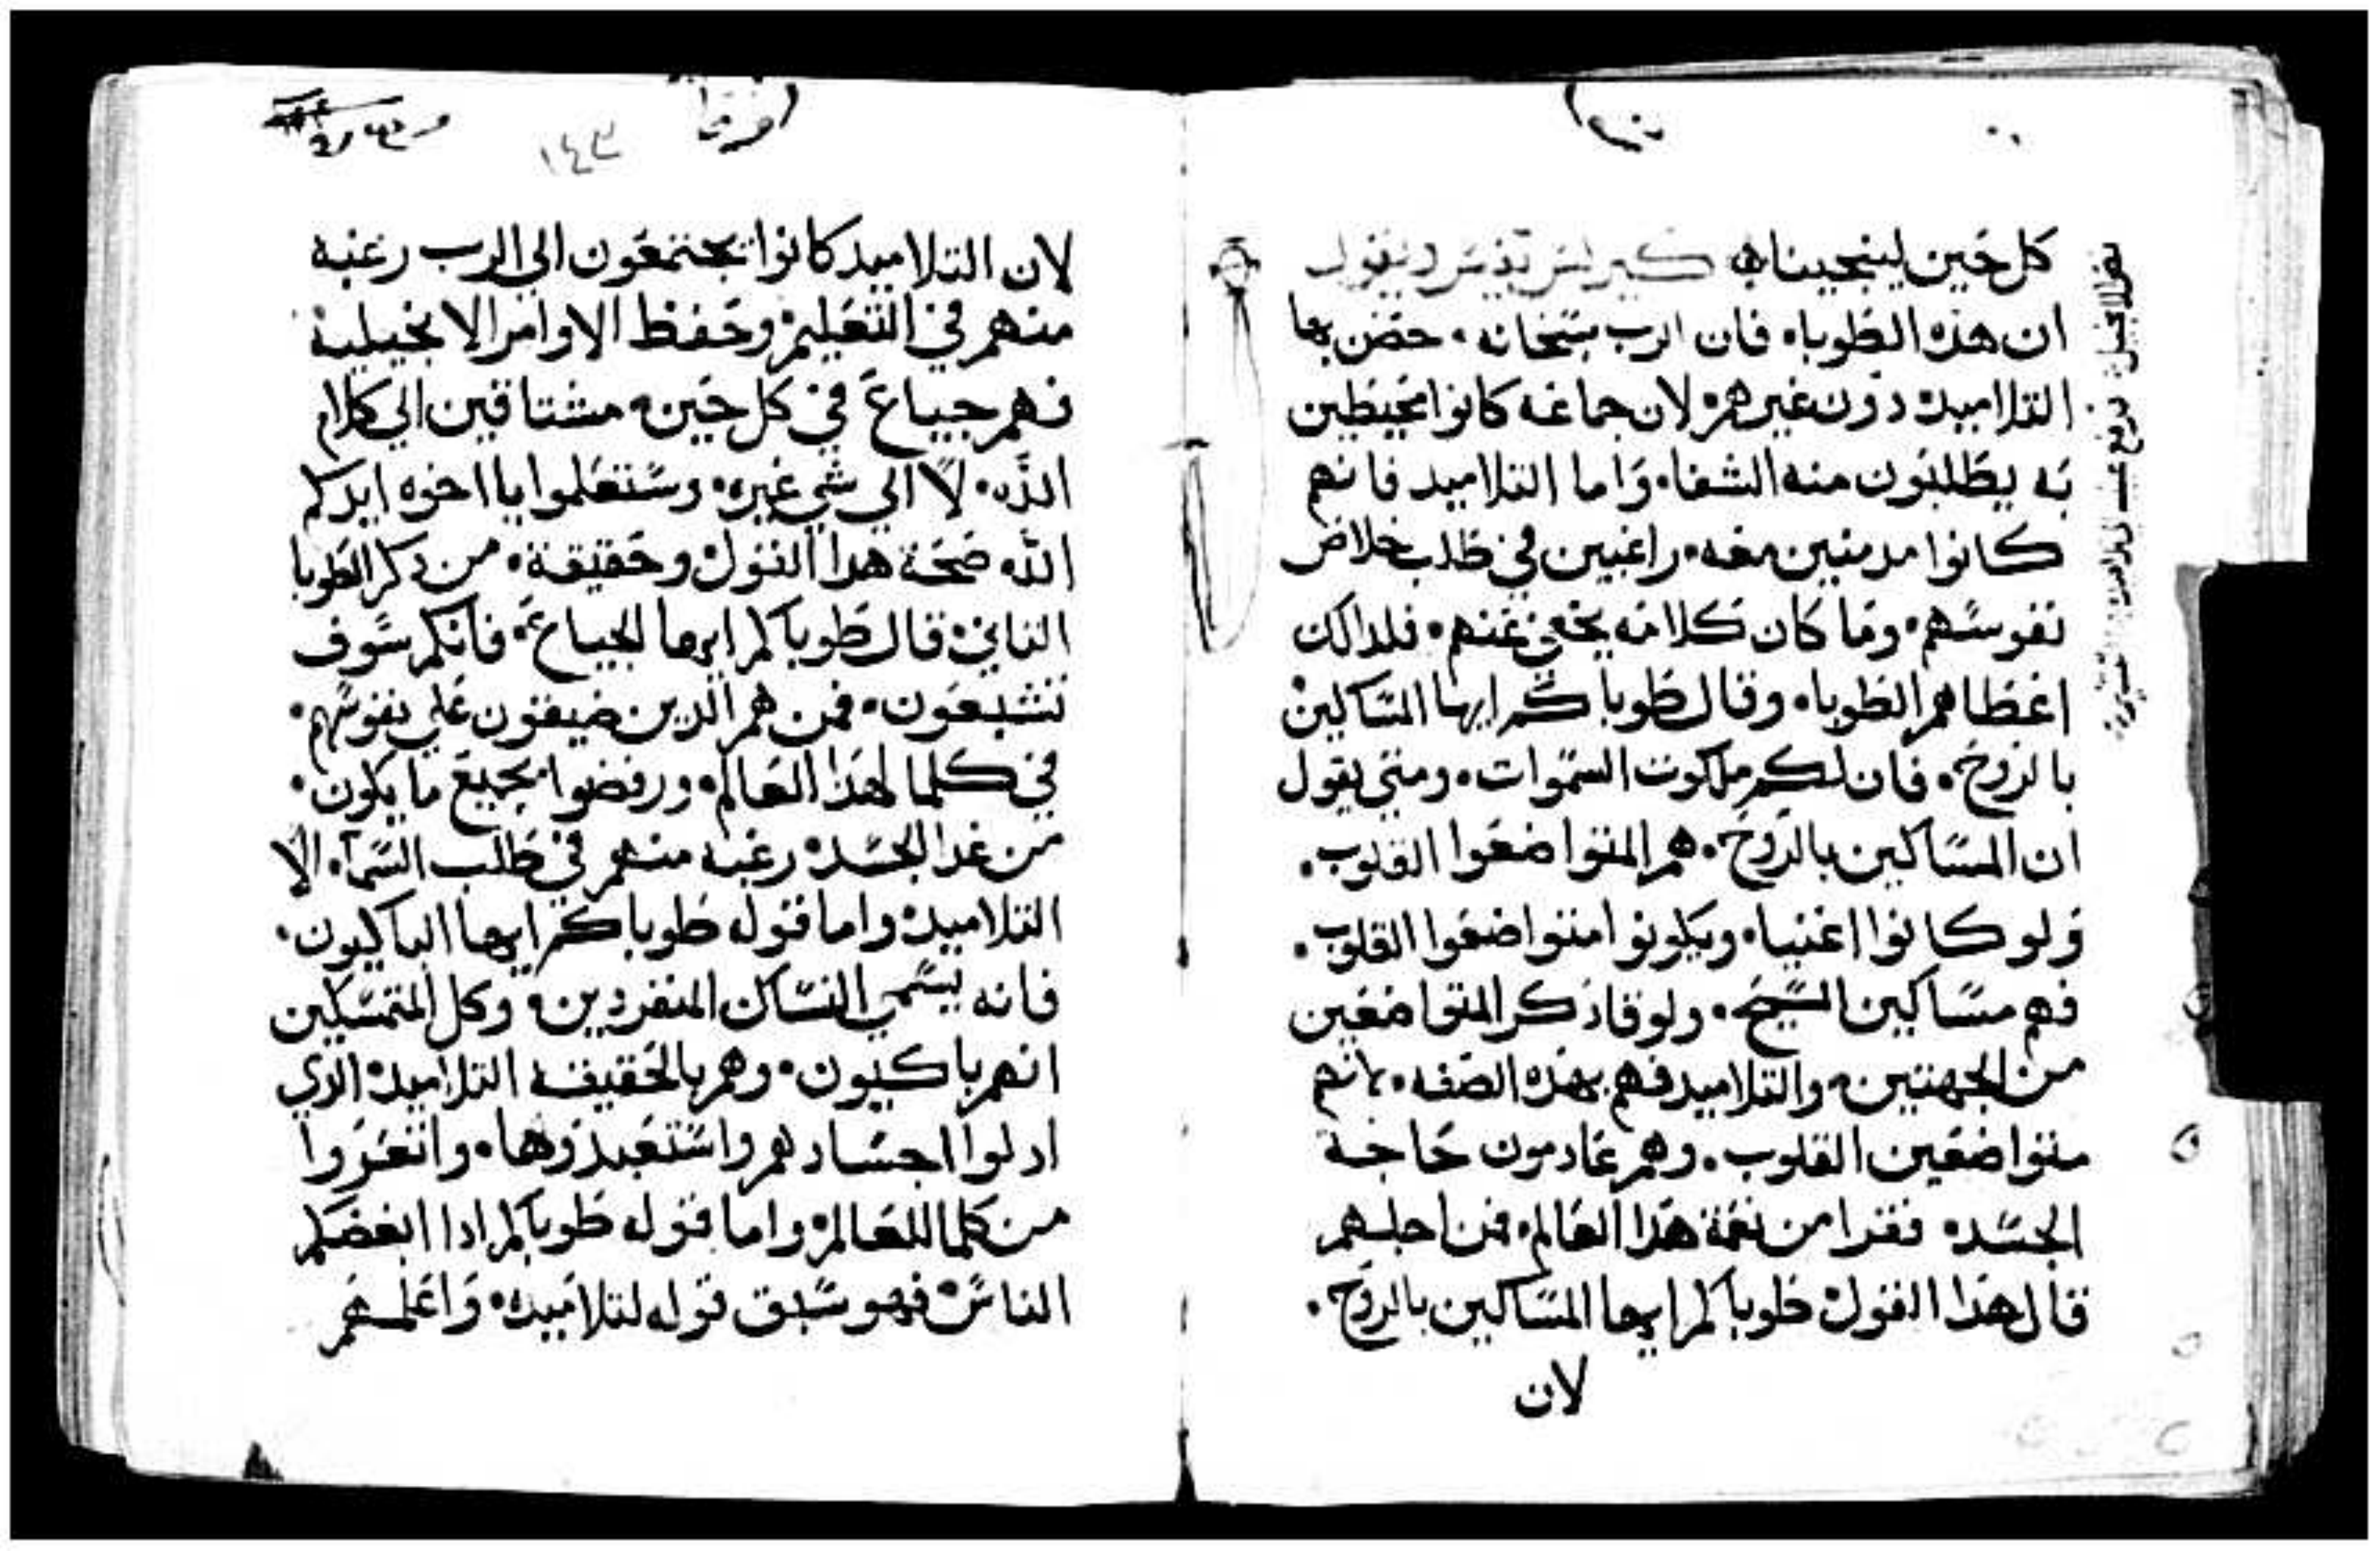 كل حين لينجينا كيرلس يفسر ويقول
ان هذه الطوبا. فان الرب سبحانه. خص بها
التلاميد دون غيرهم لان جماعه كانوا محيطين
به يطلبون منه الشفا. واما التلاميد فانهم
كانوا مدمنين معه. راغبين في طلب خلاص
نفوسهم. وما كان كلامه يخفي عنهم. فلداك
اعطاهم الطوبا. وقال طوباكم ايها المساكين
بالروح. فان لكم ملكوت السموات. ومتي يقول
ان المساكين بالروح. هم المتواضعوا القلوب.
ولو كانوا اغنيا. ويكونوا متواضعوا القلوب.
فهم مساكين المسيح. ولوقا ذكر المتواضعين
من الجهتين. والتلاميد فهم بهذه الصفه. بانهم
متواضعين القلوب. وهم عادمون حاجة
الجسد. فقرا من نعمة هذا العالم. فمن اجلهم
قال هذا القول طوباكم ايها المساكين بالروح.
لان
١٤٣
لان التلاميد كانوا يجتمعون الي الرب رغبه
منهم في التعليم وحفظ الاوامر الانجيلية
فهم جياع في كل حين. مشتاقين الي كلام
الله. لا الي شي غيره. وستعلموا يا اخوه ايدكم
الله صحة هدا القول وحقيقة. من دكر الطوبا
التاني. قال طوباكم ايها الجياع. فانكم سوف
تشبعون. فمن هم الدين ضيقون علي نفوسهم.
في كلما لهذا العالم. ورفضوا بجميع ما يكون.
من غدا الجسد. رغبه منهم في طلب السمآ. الا
التلاميد. واما قوله طوباكم ايها الباكيون.
فانه يسمي النساك المنفردين. وكل المتمسكين
انهم باكيون. وهم بالحقيقه التلاميد الدي
ادلوا اجسادهم واستعبدوها. واتعروا
من كلما للعالم. واما قوله طوباكم ادا ابغضكم
الناس فهو سبق قوله لتلاميده. واعلمهم